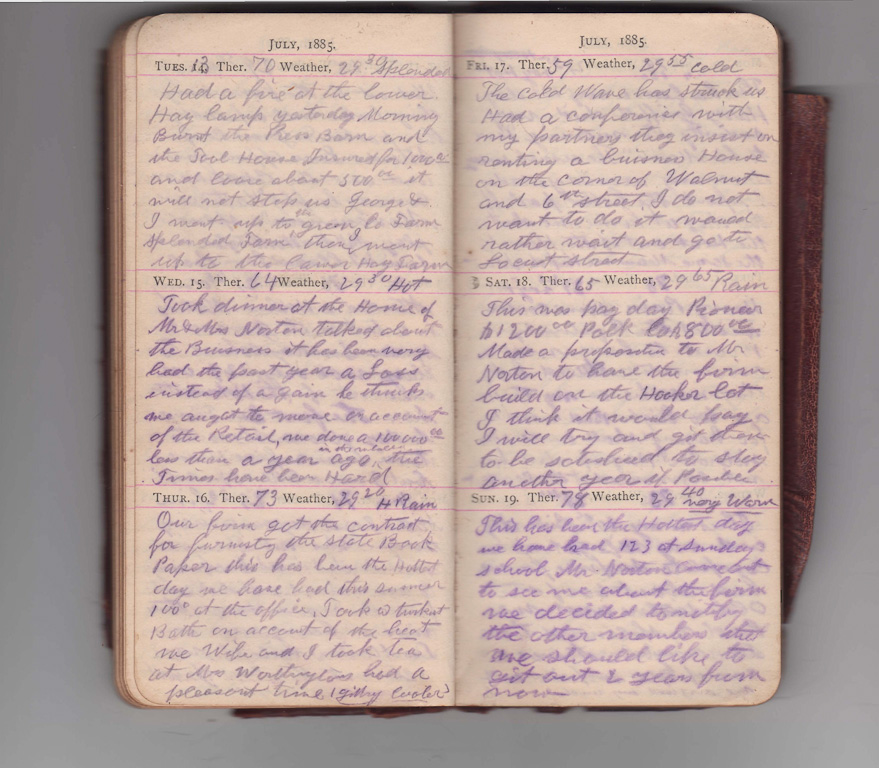 JULY, 1885.
TUES. 14. Ther. 70 Weather, 29 30 Splendid
Had a fire at the lower
Hay camp yesterday Morning
Burnt the Press Barn and
the Tool House Insured for 1000 00
and loose about 500 00 it
will not stop us George &
I went up to green le Farm
splended Farm then I went
up to the lower Hay Farm
WED. 15. Ther. 64 Weather, 29 30 Hot
Took dinner at the Home of
Mr & Mrs Norton talked about
the Buisness it has been very
bad the past year a Loss
instead of a gain he thinks
we aught to move on account
of the Retail, we done a 100000 00
less than a year ago, the
Times have been Hard
THUR. 16. Ther. 73 Weather, 29 20 H Rain
Our firm got the contract
for furnisty the state Book
Paper this has been the Hottest
day we have had this summer
100° at the office, Took a turkish
Bath on account of the heat
me Wife and I took tea
at Mrs Worthingtons had a
pleasant time (gitting cooler)
JULY, 1885.
FRI. 17. Ther. 59 Weather, 29 55 cold
The cold Wave has struck us
Had a conference with
my partners they insist on
renting a buisness House
on the corner of Walnut
and 6th street I do not
want to do it would
rather wait and go to
Locust street
SAT. 18. Ther. 65 Weather, 29 65 Rain
This was pay day Pioneer
$1200 00 Polk Co $800 00
Made a proposition to Mr
Norton to have the firm
build on the Hooker lot
I think it would pay
I will try and git them
to be satisfied to stay
another year if Possible
SUN. 19. Ther. 78 Weather, 29 40 very Warm
This has been the Hottest day
we have had 123 at Sunday
school Mr Norton came out
to see me about the firm
we decided to notify
the other members that
we should like to
git out 2 years from
now